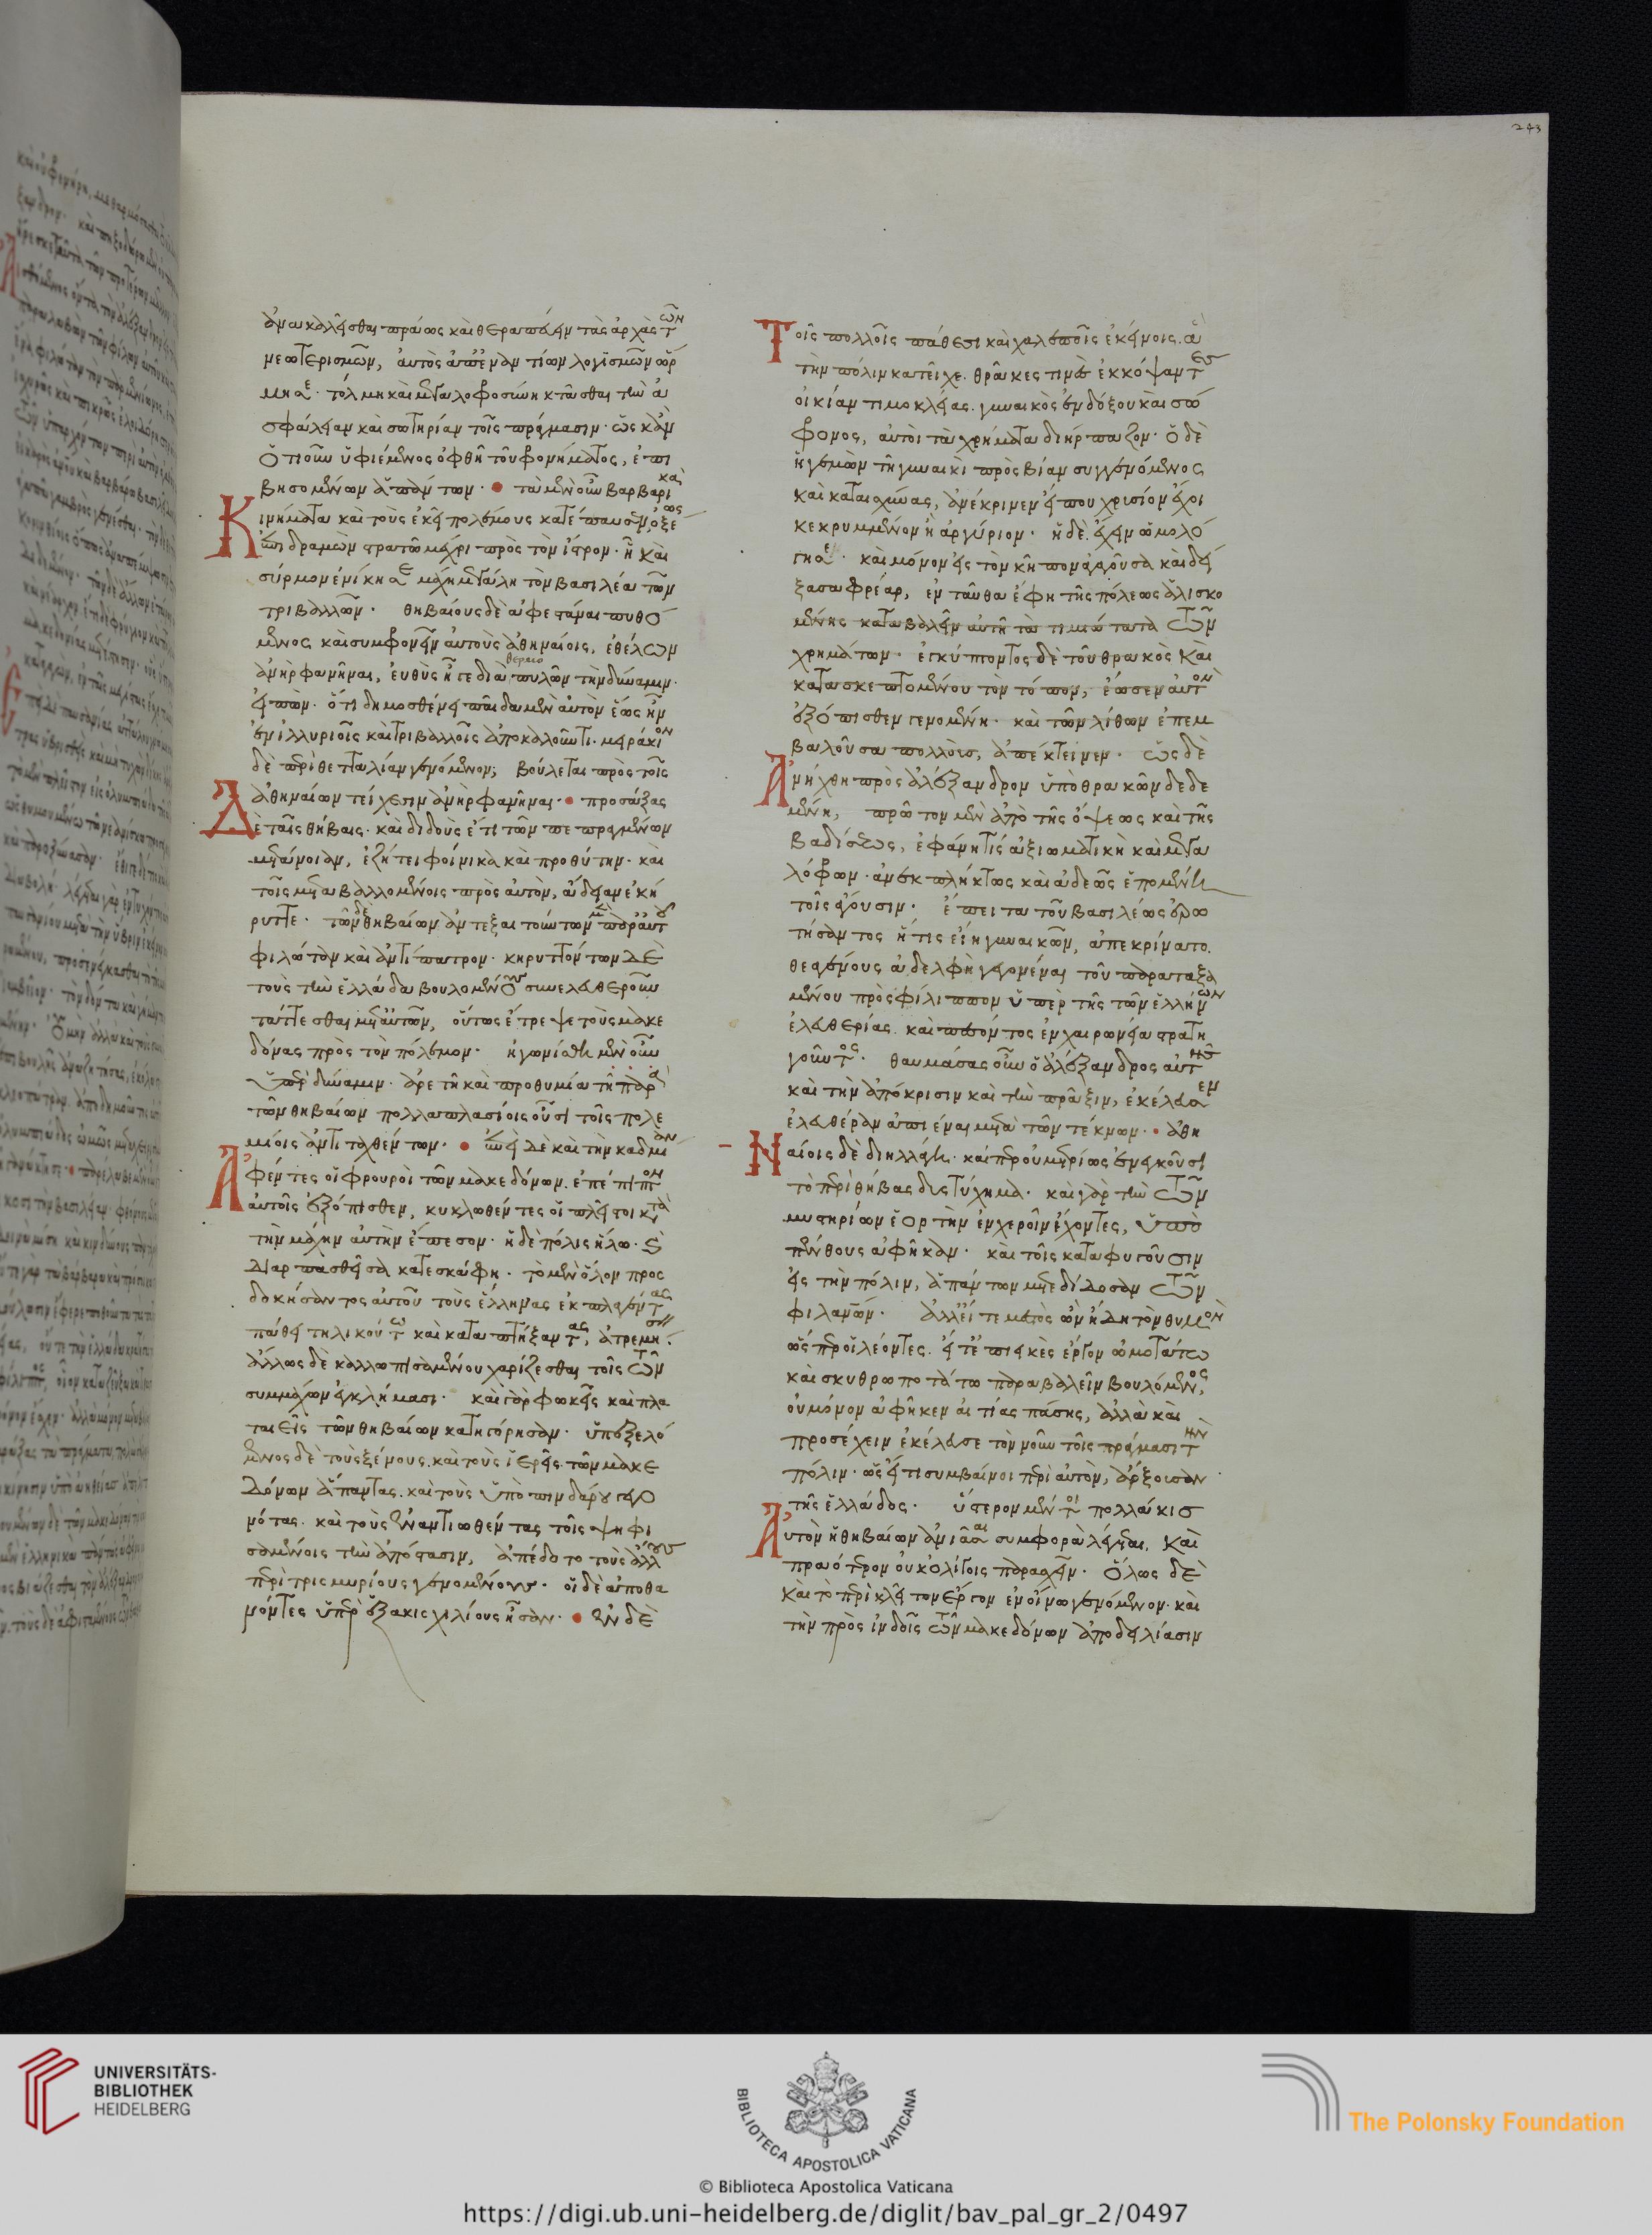 243
ἀνακαλεῖσθαι πράως καὶ θεραπεύειν τὰς ἀρχὰς τῶν
νεωτερισμῶν, αὐτὸς ἀπ' ἐναντίων λογισμῶν ὥρ
μησε τόλμῃ καὶ μεγαλοφροσύνῃ κτᾶσθαι τὴν ἀ
σφάλειαν καὶ σωτηρίαν τοῖς πράγμασιν· ὡς κἂν
ὁτιοῦν ὑφιέμενος ὀφθῇ τοῦ φρονήματος, ἐπι
βησομένων ἁπάντων· τὰ μὲν οὖν βαρβαρικὰ
κινήματα καὶ τοὺς ἐκεῖ πολέμους κατέπαυσεν, ὀξέως
ἐπιδραμὼν στρατῷ μέχρι πρὸς τὸν ἴστρον· ᾗ καὶ
σύρμον ἐνίκησε μάχῃ μεγάλῃ τὸν βασιλέα τῶν
τριβαλλῶν· θηβαίους δὲ ἀφεστάναι πυθό
μενος καὶ συμφρονεῖν αὐτοὺς ἀθηναίοις, ἐθέλων
ἀνὴρ φανῆναι, εὐθὺς ἦγε διὰ πυλῶν τὴν δύναμιν·
θερμο
εἰπὼν· ὅτι δημοσθένει παῖδα μὲν αὐτὸν ἕως ἦν
ἐν ἰλλυριοῖς καὶ τριβαλλοῖς ἀποκαλοῦντι· μειράκιον
δὲ περὶ θετταλίαν γενόμενον, βούλεται πρὸς τοῖς
ἀθηναίων τείχεσιν ἀνὴρ φανῆναι· προσάξας
δὲ ταῖς θήβαις· καὶ διδοὺς ἔτι τῶν πεπραγμένων
μετάνοιαν, ἐζήτει φοίνικα καὶ προθύτην· καὶ
τοῖς μεταβαλλομένοις πρὸς αὐτὸν, ἄδειαν ἐκή
ρυττε· τῶν δὲ θηβαίων ἀντεξαιτούντων μὲν παρ' αὐτοῦ
φιλώταν καὶ ἀντίπατρον· κηρυττόντων δὲ
τοὺς τὴν ἑλλάδα βουλομένους συνελευθεροῦν
τάττεσθαι μετ' αὐτῶν, οὕτως ἔτρεψε τοὺς μακε
δόνας πρὸς τὸν πόλεμον· ἠγωνίσθη μὲν οὖν
ὑπὲρ δύναμιν· ἀρετῇ καὶ προθυμίᾳ τῇ παρὰ
τῶν θηβαίων πολλαπλασίοις οὖσι τοῖς πολε
μίοις ἀντιταχθέντων· ἐπεὶ δὲ καὶ τὴν καδμείαν
ἀφέντες οἱ φρουροὶ τῶν μακεδόνων. ἐπέπιπτον
αὐτοῖς ἐξόπισθεν, κυκλωθέντες οἱ πλεῖστοι κατὰ
τὴν μάχην αὐτὴν ἔπεσον· ἡ δὲ πόλις ἥλω· καὶ
διαρπασθεῖσα κατεσκάφη· τὸ μὲν ὅλον προσ
δοκήσαντος αὐτοῦ τοὺς ἕλληνας ἐκπλαγέντας
πάθει τηλικούτω καὶ καταπτήξαντας, ἀτρεμήσειν·
ἄλλως δὲ καλλωπισαμένου χαρίζεσθαι τοῖς τῶν
συμμάχων ἐγκλήμασι· καὶ γὰρ φωκεῖς καὶ πλα
ταιεῖς τῶν θηβαίων κατηγόρησαν· ὑπεξελό
μενος δὲ τοὺς ξένους. καὶ τοὺς ἱερεῖς τῶν μακε
δόνων ἅπαντας. καὶ τοὺς ὑπὸ πινδάρου γεγο
νότας. καὶ τοὺς ἐναντιωθέντας τοῖς ψηφι
σαμένοις τὴν ἀπόστασιν, ἀπέδοτο τοὺς ἄλλους
περὶ τρισμυρίους γενομένους· οἱ δὲ ἀποθα
νόντες ὑπὲρ ἑξακισχιλίους ἦσαν· ἐν δὲ
τοῖς πολλοῖς πάθεσι καὶ χαλεποῖς ἐκείνοις. ἃ
τὴν πόλιν κατεῖχε. θρᾷκές τινες ἐκκόψαντες
οἰκίαν τιμοκλείας. γυναικὸς ἐνδόξου καὶ σώ
φρονος, αὐτοὶ τὰ χρήματα διήρπαζον· ὁ δὲ
ἡγεμὼν τῇ γυναικὶ πρὸς βίαν συγγενόμενος
καὶ καταισχύνας, ἀνέκρινεν εἴ που χρυσίον ἔχοι
κεκρυμμένον ἢ ἀργύριον· ἡ δὲ. ἔχειν ὡμολό
γησε· καὶ μόνον εἰς τὸν κῆπον ἀγαγοῦσα καὶ δεί
ξασα φρέαρ, ἐνταῦθα ἔφη τῆς πόλεως ἁλισκο
μένης καταβαλεῖν αὐτὴ τὰ τιμιώτατα τῶν
χρημάτων· ἐγκύπτοντος δὲ τοῦ θρακὸς καὶ
κατασκεπτομένου τὸν τόπον, ἔωσεν αὐτὸν
ἐξόπισθεν γενομένη· καὶ τῶν λίθων ἐπεμ
βαλοῦσα πολλοὺς, ἀπέκτεινεν· ὡς δὲ
ἀνήχθη πρὸς ἀλέξανδρον ὑπὸ θρακῶν δεδε
μένη, πρῶτον μὲν ἀπὸ τῆς ὄψεως καὶ τῆς
βαδίσεως, ἐφάνη τίς ἀξιωματικὴ καὶ μεγα
λόφρων· ἀνεκπλήκτως καὶ ἀδεῶς ἑπομένη
τοῖς ἄγουσιν· ἔπειτα τοῦ βασιλέως ἐρω
τήσαντος ἥτις εἴη γυναικῶν, ἀπεκρίνατο.
θεαγένους ἀδελφὴ γεγονέναι τοῦ παραταξα
μένου πρὸς φίλιππον ὑπὲρ τῆς τῶν ἑλλήνων
ἐλευθερίας. καὶ πεσόντος ἐν χαιρωνείᾳ στρατη
γοῦντος· θαυμάσας οὖν ὁ ἀλέξανδρος αὐτῆς
καὶ τὴν ἀπόκρισιν καὶ τὴν πρᾶξιν, ἐκέλευσεν
ἐλευθέραν ἀπιέναι μετὰ τῶν τέκνων· ἀθη
ναίοις δὲ διηλλάγη· καίπερ οὐ μετρίως ἐνεγκοῦσι
τὸ περὶ θήβας δυστύχημα· καὶ γὰρ τὴν τῶν
μυστηρίων ἑορτὴν ἐν χεροῖν ἔχοντες, ὑπὸ
πένθους ἀφῆκαν· καὶ τοῖς καταφυγοῦσιν
εἰς τὴν πόλιν, ἁπάντων μετεδίδοσαν τῶν
φιλανθρώπων· ἀλλ' εἴτε μεστὸς ὢν ἤδη τὸν θυμὸν
ὥσπερ οἱ λέοντες. εἴτ' ἐπιεικὲς ἔργον ὠμοτάτῳ
καὶ σκυθρωποτάτῳ παραβαλεῖν βουλόμενος,
οὐ μόνον ἀφῆκεν αἰτίας πάσης, ἀλλὰ καὶ
προσέχειν ἐκέλευσε τὸν νοῦν τοῖς πράγμασι τὴν
πόλιν· ὡς εἴ τι συμβαίνοι περὶ αὐτὸν, ἄρξουσαν
τῆς ἑλλάδος. ὕστερον μέντοι πολλάκις
αὐτὸν ἡ θηβαίων ἀνιᾶσαι συμφορὰ λέγεται, καὶ
πραότερον οὐκ ὀλίγοις παρασχεῖν· ὅλως δὲ
καὶ τὸ περὶ κλεῖτον ἔργον ἐν οἴνῳ γενόμενον· καὶ
τὴν πρὸς ἰνδοὺς τῶν μακεδόνων ἀποδειλίασιν
UNIVERSITÄTS-
BIBLIOTHEK
HEIDELBERG
BIBLIOTECA APOSTOLICA VATICANA
The Polonsky Foundation
© Biblioteca Apostolica Vaticana
https://digi.ub.uni-heidelberg.de/diglit/bav_pal_gr_2/0497